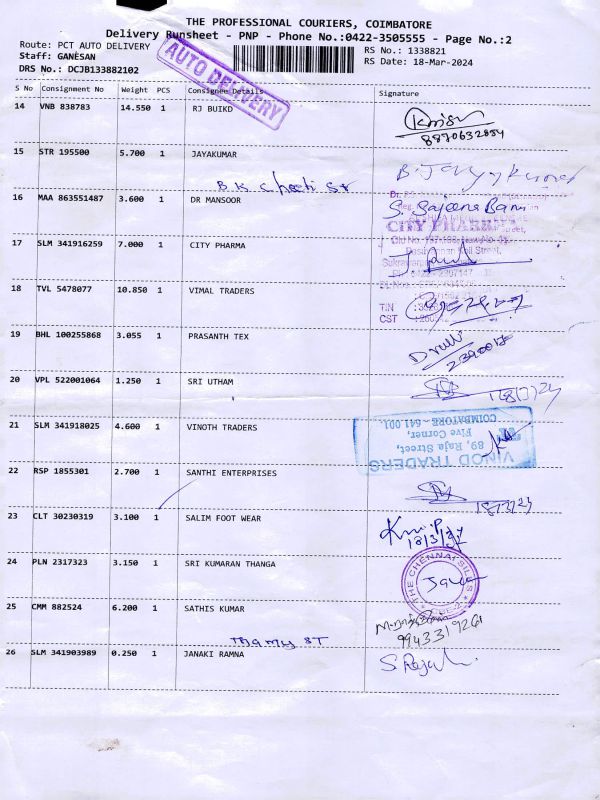 THE PROFESSIONAL COURIERS, COIMBATORE
Delivery Runsheet - PNP - Phone No.:0422-3505555 - Page No.:2
Route: PCT AUTO DELIVERY
Staff: GANESAN
DRS No.: DCJB133882102
RS No.: 1338821
RS Date: 18-Mar-2024
AUTO DELIVERY
S No Consignment No Weight PCS Consignee Details Signature
14 VNB 838783 14.550 1 RJ BUIKD
8870632854
15 STR 195500 5.700 1 JAYAKUMAR
16 MAA 863551487 3.600 1 DR MANSOOR
S. Sajeena Banu
17 SLM 341916259 7.000 1 CITY PHARMA
CITY PHARMA
18 TVL 5478077 10.850 1 VIMAL TRADERS
TIN
CST
19 BHL 100255868 3.055 1 PRASANTH TEX
20 VPL 522001064 1.250 1 SRI UTHAM
18/3/24
21 SLM 341918025 4.600 1 VINOTH TRADERS
VINOD TRADERS
89, Raja Street,
Five Corner,
COIMBATORE - 641 001.
22 RSP 1855301 2.700 1 SANTHI ENTERPRISES
18/3/24
23 CLT 30230319 3.100 1 SALIM FOOT WEAR
24 PLN 2317323 3.150 1 SRI KUMARAN THANGA
THE CHENNAI SILKS
25 CMM 882524 6.200 1 SATHIS KUMAR
9943319261
26 SLM 341903989 0.250 1 JANAKI RAMNA